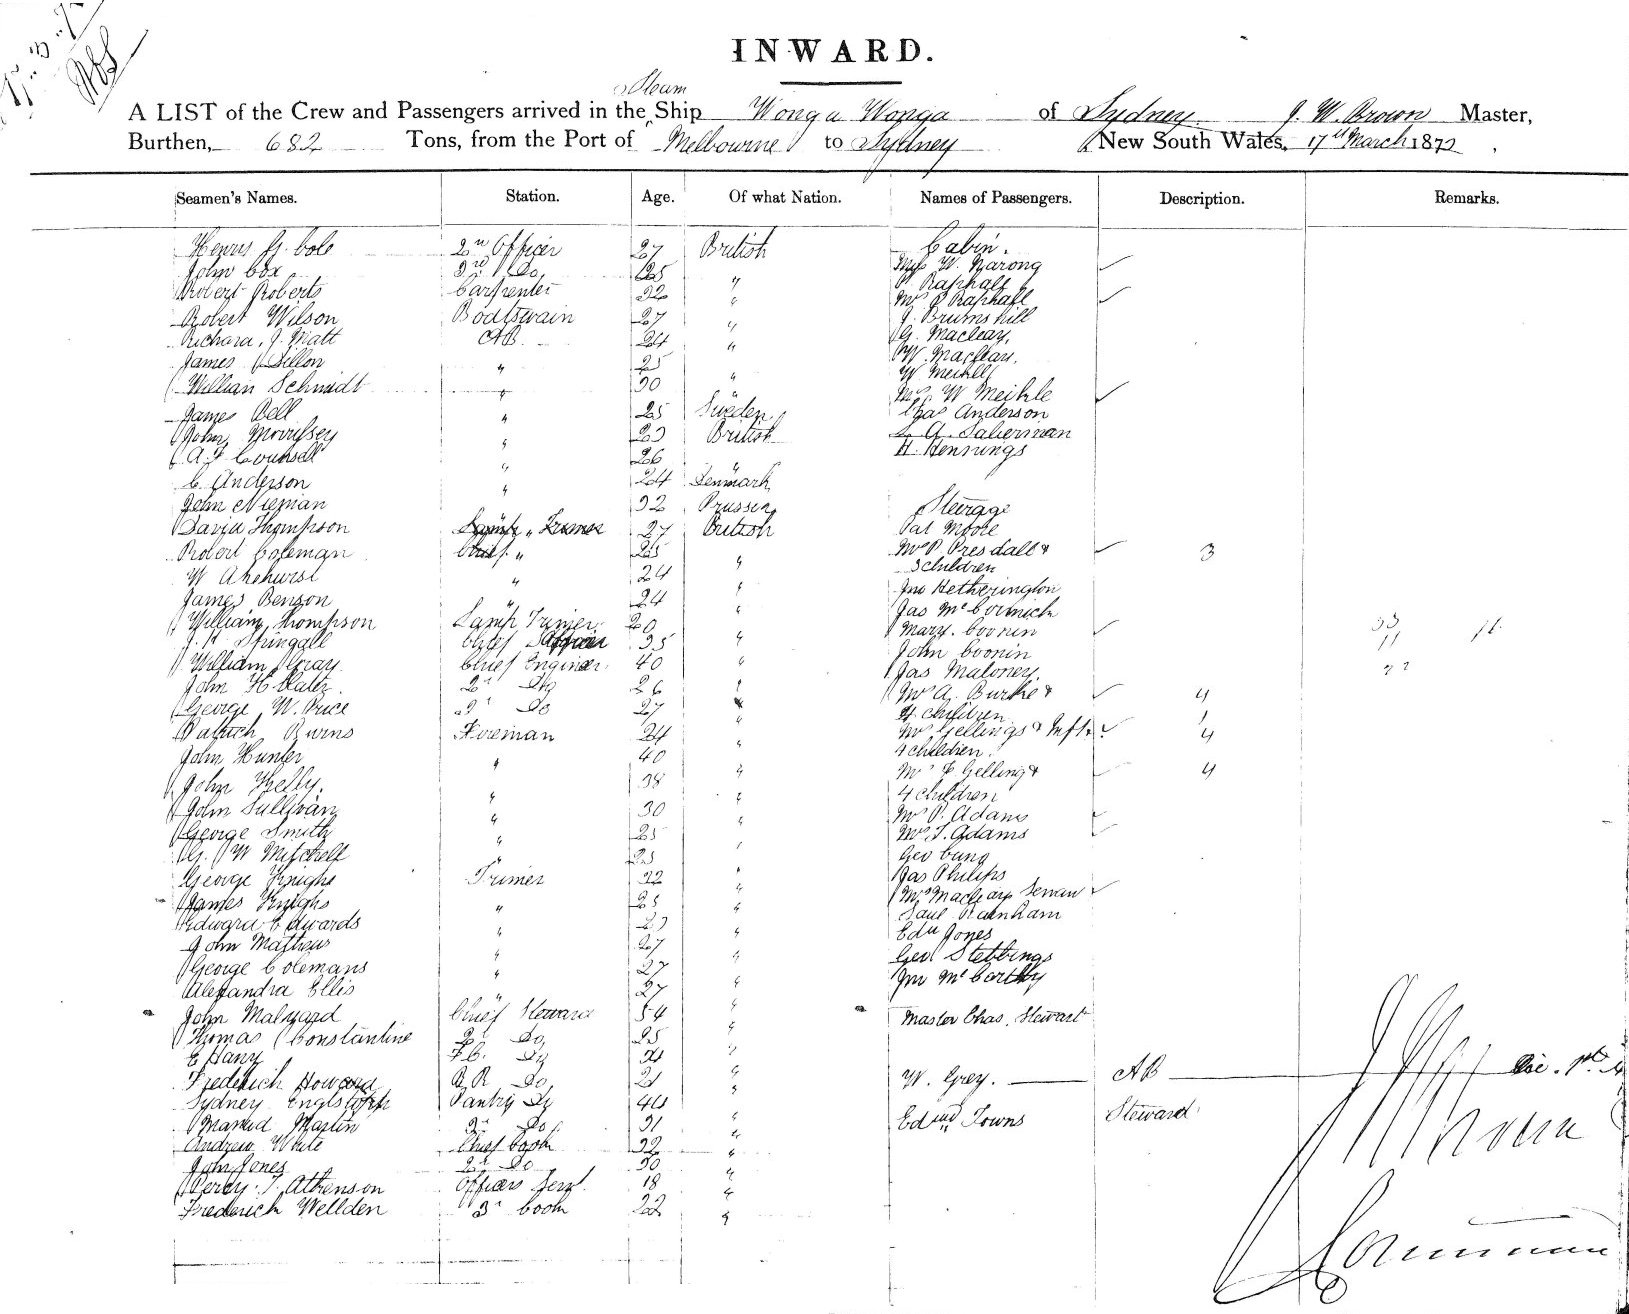 INWARD.
Steam
A LIST of the Crew and Passengers arrived in the Ship Wonga Wonga of Sydney J. W. Brown Master,
Burthen, 682 Tons, from the Port of Melbourne to Sydney New South Wales, 17th March 1872
Seamen's Names. Station. Age. Of what Nation. Names of Passengers. Description. Remarks.
Henry G. Cole 2n Officer 27 British Cabin.
John Cox 3rd Do 25 W. Narong
Robert Roberts Carpenter 32 " P Raphall
Mrs P Raphall
Robert Wilson Boatswain 27 " J. Brumshill
Richard J. Matt AB 24 " G. Macleay,
James Dillon " 25 W. Macleay.
W Meikle
William Schmidt " 30 " Mrs W Meikle
James Bell " 25 Sweden Chas Anderson
John Morrissey " 23 British A. Salierman
A. J Counsell " 26 H. Hennings
C. Anderson " 24 Denmark
John Nieman 32 Prussia Steerage
David Thompson 27 British Pat Moore
Robert Coleman " 25 Mrs P. Presdall & 3
3 children
W Akehurst " 24 " Jno Hetherington
James Benson " 24 " Jas McCormick
William Thompson Lamp Trimer 20 " Mary Coonin
J. H Springall Chief Officer 35 " John Coonin
William Gray Chief Engineer 40 " Jas Maloney.
John H Slatz 2n Do 26 " Mrs A. Burke & 4
4 children 1
George W. Price 3r Do 27 " Mrs Gellings & Inft. 4
4 children.
Patrick Burns Fireman 24 "
John Hunter " 40 " Mrs F Gelling & 4
John Kelly. " 38 " 4 children
John Sullivan " 30 " Mrs P. Adams
George Smith " 25 Mrs T. Adams
G. W Mitchell " 25 " Geo Cung
George Knighs Trimer 32 " Jas Philips
James Knighs " 25 " Mrs Macleays Servan
Edward Edwards " 23 " Saul Rainham
John Mathews " 27 " Edwd Jones
George Colemans " 27 " Geo Stebbings
Alexandra Ellis " 27 " Jno McCarthy
John Malyard Chief Steward 54 " Master Chas. Stewart
Thomas Constantine 2n Do 25 "
E Hany F.C. Do 21 "
Frederick Howard B R Do 21 " W. Grey. AB
Sydney Pantry Do 44 "
Martin 2n Do 31 " Edwd Towns Steward
Andrew White Chief Cook 32 "
John Jones 2n Do 30 "
Percy T. Atkenson Officers Servt. 18 "
Frederick Wellden 3r Cook 22 "